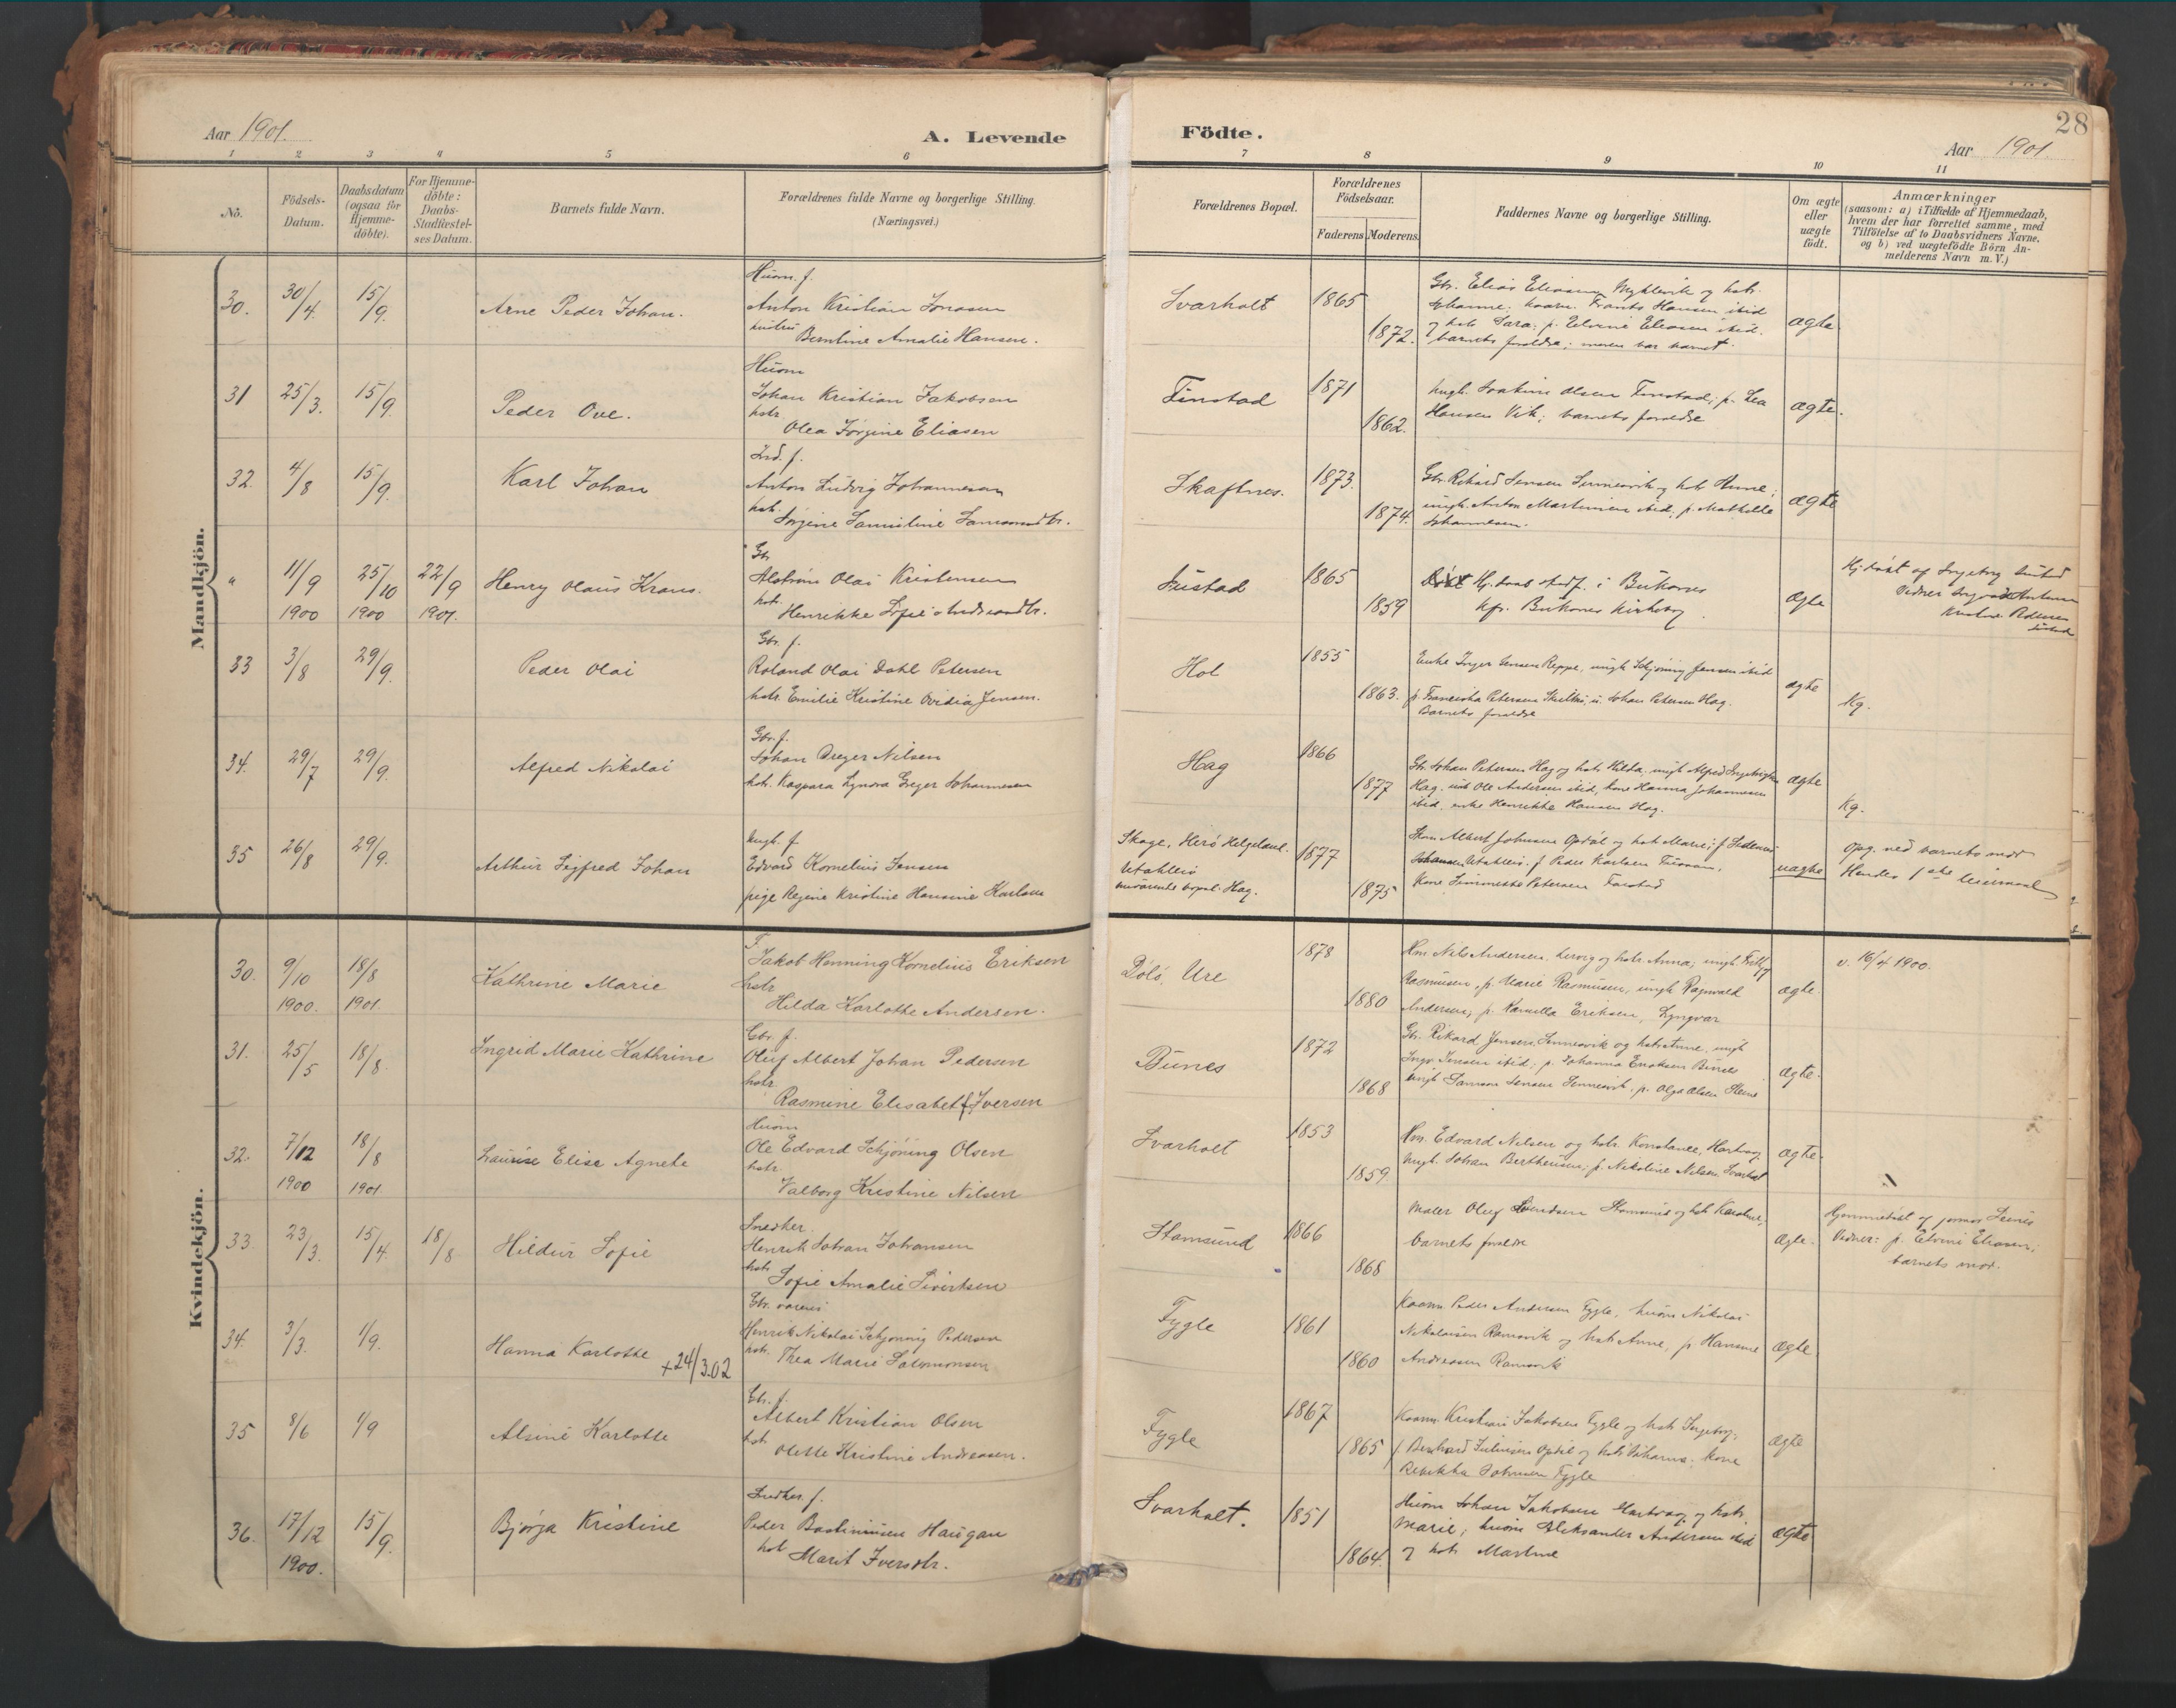 Aar 1901.
A. Levende
Födte.
28
Aar 1901.
1 2 3 4 5 6 7 8 9 10 11
No.
Födsels-
Datum.
Daabsdatum
(ogsaa for
Hjemme-
döbte).
For Hjemme-
döbte:
Daabs-
Stadfæstel-
ses Datum.
Barnets fulde Navn.
Forældrenes fulde Navne og borgerlige Stilling.
(Næringsvei.)
Forældrenes Bopæl.
Forældrenes
Födselsaar.
Faderens Moderens
Faddernes Navne og borgerlige Stilling.
Om ægte
eller
uægte
födt.
Anmærkninger
(saasom: a) i Tilfælde af Hjemmedaab,
hvem der har forrettet samme, med
Tilföielse af to Daabsvidners Navne.
og b) ved uægtefödte Börn An-
melderens Navn m.V.)
Mandkjön.
30. 30/4. 15/9. Arne Peder Johan.
Husm. f.
Anton Kristian Jonasen
hustru
Berntine Amalie Hansen.
Svarholt 1865 1872.
Gbr. Elias Eliasen Myklevik og hstr.
Johanne; Frants Hansen ibid
og hstr Sara; p. Elvine Eliasen ibid.
barnets forældre;
ægte
31 25/3. 15/9. Peder Ove.
Husm
Johan Kristian Jakobsen
hstr
Olea Jørgine Eliasen
Finstad 1871 1862.
ungk. Olsen Finstad; p. Lea
Hansen Vik; barnets forældre
ægte.
32. 4/8 15/9. Karl Johan
Ind. f.
Anton Ludvig Johannesen
hstr.
Jørgine
Skaftnes. 1873. 1874.
Gbr. Rikard Jensen Sennesvik og hstr Anne;
ungk. Anton Martinsen ibid; p. Mathilde
Johannesen.
ægte
" 11/9 1900 25/10 1900 22/9 1901. Henry Olaus Kraus.
Gb
Olai Kristensen
hstr.
Henrikke Sofie Andreasdtr.
Sustad 1865 1859
Hj. daab stadf. i Buksnes
kfr. Buksnes kirkebog
ægte
Hj. døbt af Ingeborg Sustad
Vidner
33 3/8 29/9. Peder Olai
Gbr. f.
Roland Olai Dahl Petersen
hstr. Emilie Kristine Ovidia Jensen.
Hol 1855 1863.
Enke Inger Jensen Reppe, ungk Schjøning Jensen ibid
p. Fransiska Petersen u. Johan Petersen Hag.
Barnets forældre
ægte
Kg.
34. 29/7 29/9. Alfred Nikolai
Gbr. f.
Johan Dreyer Nilsen
hstr. Kaspara Lynora Greger Johannesen
Hag 1866 1877
Gbr. Johan Petersen Hag og hstr Hilda, ungk Alfred
Hag. Ole Andersen ibid, kone Hanna Johannesen
ibid. enke Henrikke Hansen Hag.
ægte
Kg.
35 26/8 29/9. Arthur Sigfred Johan
Ungk. f
Edvard Kornelius Jensen
pige Regine Kristine Hansine Karlsen
Skage, Herø Helgeland.
Utakleiv
nuværende bopæl. Hag. 1877 1875
Albert Johnsen Opdøl og hstr Marie;
Johansen Utakleiv. f Peder Karlsen
Kone Petersen Farstad
uægte
Opg. ved barnets mor
Hendes 1ste leiermaal
Kvindekjön.
30. 9/10 1900. 18/8 1901. Kathrine Marie
F
Jakob Henning Kornelius Eriksen
hstr
Hilda Karlotte Andersen.
Dölö, Ure 1878 1880
Hm. Nils Andersen og hstr Anna; ungk
Rasmusen, p. Marie Rasmusen, ungk Ragnvald
Andersen; p. Kamilla Eriksen, Lyngvær
ægte.
v. 16/4 1900.
31. 25/5 18/8. Ingrid Marie Kathrine
Gbr. f.
Oluf Albert Johan Pedersen
hstr
Rasmine Elisabeth Iversen
Bunes 1872 1868
Gbr. Rikard Jensen Sennesvik og hstr Anne, ungk
Jensen ibid; p. Johanna Enoksen Bunes
ungk Samson Jensen Sennesvik. p. Olga Olsen Steine
ægte.
32. 7/12 1900 18/8 1901. Laurise Elise Agnete
Husm
Ole Edvard Schjøning Olsen
hstr.
Valborg Kristine Nilsen
Svarholt 1853 1859.
Hm. Edvard Nilsen og hstr Konstance, Hartvåg
Ungk. Johan Berthensen; p. Nikoline Nilsen, Svarholt
ægte.
33. 23/3. 15/4. 18/8 Hildur Sofie
Snedker.
Henrik Johan Johansen
hstr
Sofie Amalie Sivertsen
Stamsund 1866 1868
Maler Oluf Svendsen Stamsund og hstr Karoline,
barnets forældre
ægte.
Hjemmedøbt af jormor Steine
Vidner: p. Elvine Eliasen;
barnets mor.
34. 3/3. 1/9. Hanna Karlotte +24/3.02
Gbr.
Henrik Nikolai Schjønnig Pedersen
hstr.
Thea Marie Salomonsen
Fygle 1861 1860
Kaarm. Peder Andersen Fygle, husm Nikolai
Nikolaisen Ramsvik og hstr Anne, p. Hansine
Andreassen Ramsvik
ægte
35 8/6 1/9 Alsine Karlotte
Gbr. f.
Albert Kristian Olsen
hstr
Olette Kristine Andreasen.
Fygle 1867 1865
Kaarm. Kristian Jakobsen Fygle og hstr Ingeborg,
f. Bernhard Opdöl og hstr kone
Rebekka Johnsen Fygle
ægte
36. 17/12 1900. 15/9. Bjørga Kristine
Snedker f.
Peder Bastiniusen Haugan
hstr
Marit Iversdtr.
Svarholt. 1851 1864.
Husm Johan Jakobsen Hartvåg og hstr.
Marie; husm Aleksander Andersen ibid
og hstr Martine
ægte